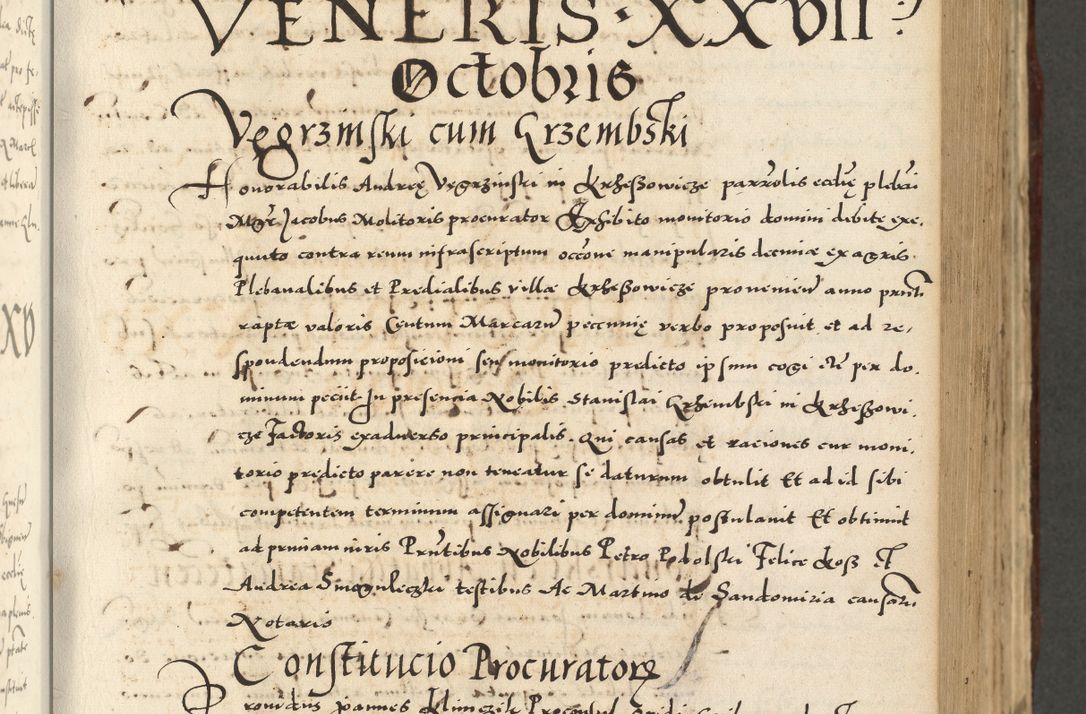 VENERIS · XXVII
Octobris
Vęgrzmski cum Grzembski
Honorabilis Andreę Vegrzinski in Krheßowicze parrolis ecclię plebani
Mgr Jacobus Molitoris procurator Exhibito monitorio domini debite exe,
quuto contra reum infrascriptum occone manipularis decimæ ex agris.
Plebanalibus et Predialibus villæ Krheßowicze provenien anno prnti
raptæ valoris Centum Marcaru peccunię verbo proposuit et ad re,
spondendum proposicioni seu monitorio predicto ipsum cogi etc per do,
minum peciit In presencia Nobilis Stanislai Grhembski in Krheßowi,
cze Factoris ex adverso principalis. Qui causas et raciones cur moni,
torio predicto parere non teneatur se daturum obtulit Et ad id sibi
competentem terminum assignari per dominu postulavit Et obtinuit
ad primam iuris Prntibus Nobilibus Petro Podolski Felice Koß Et
Andrea Smoguleczki testibus Ac Martino de Sandomiria causaru
Notario
Constitucio Procuratorę
Joannes